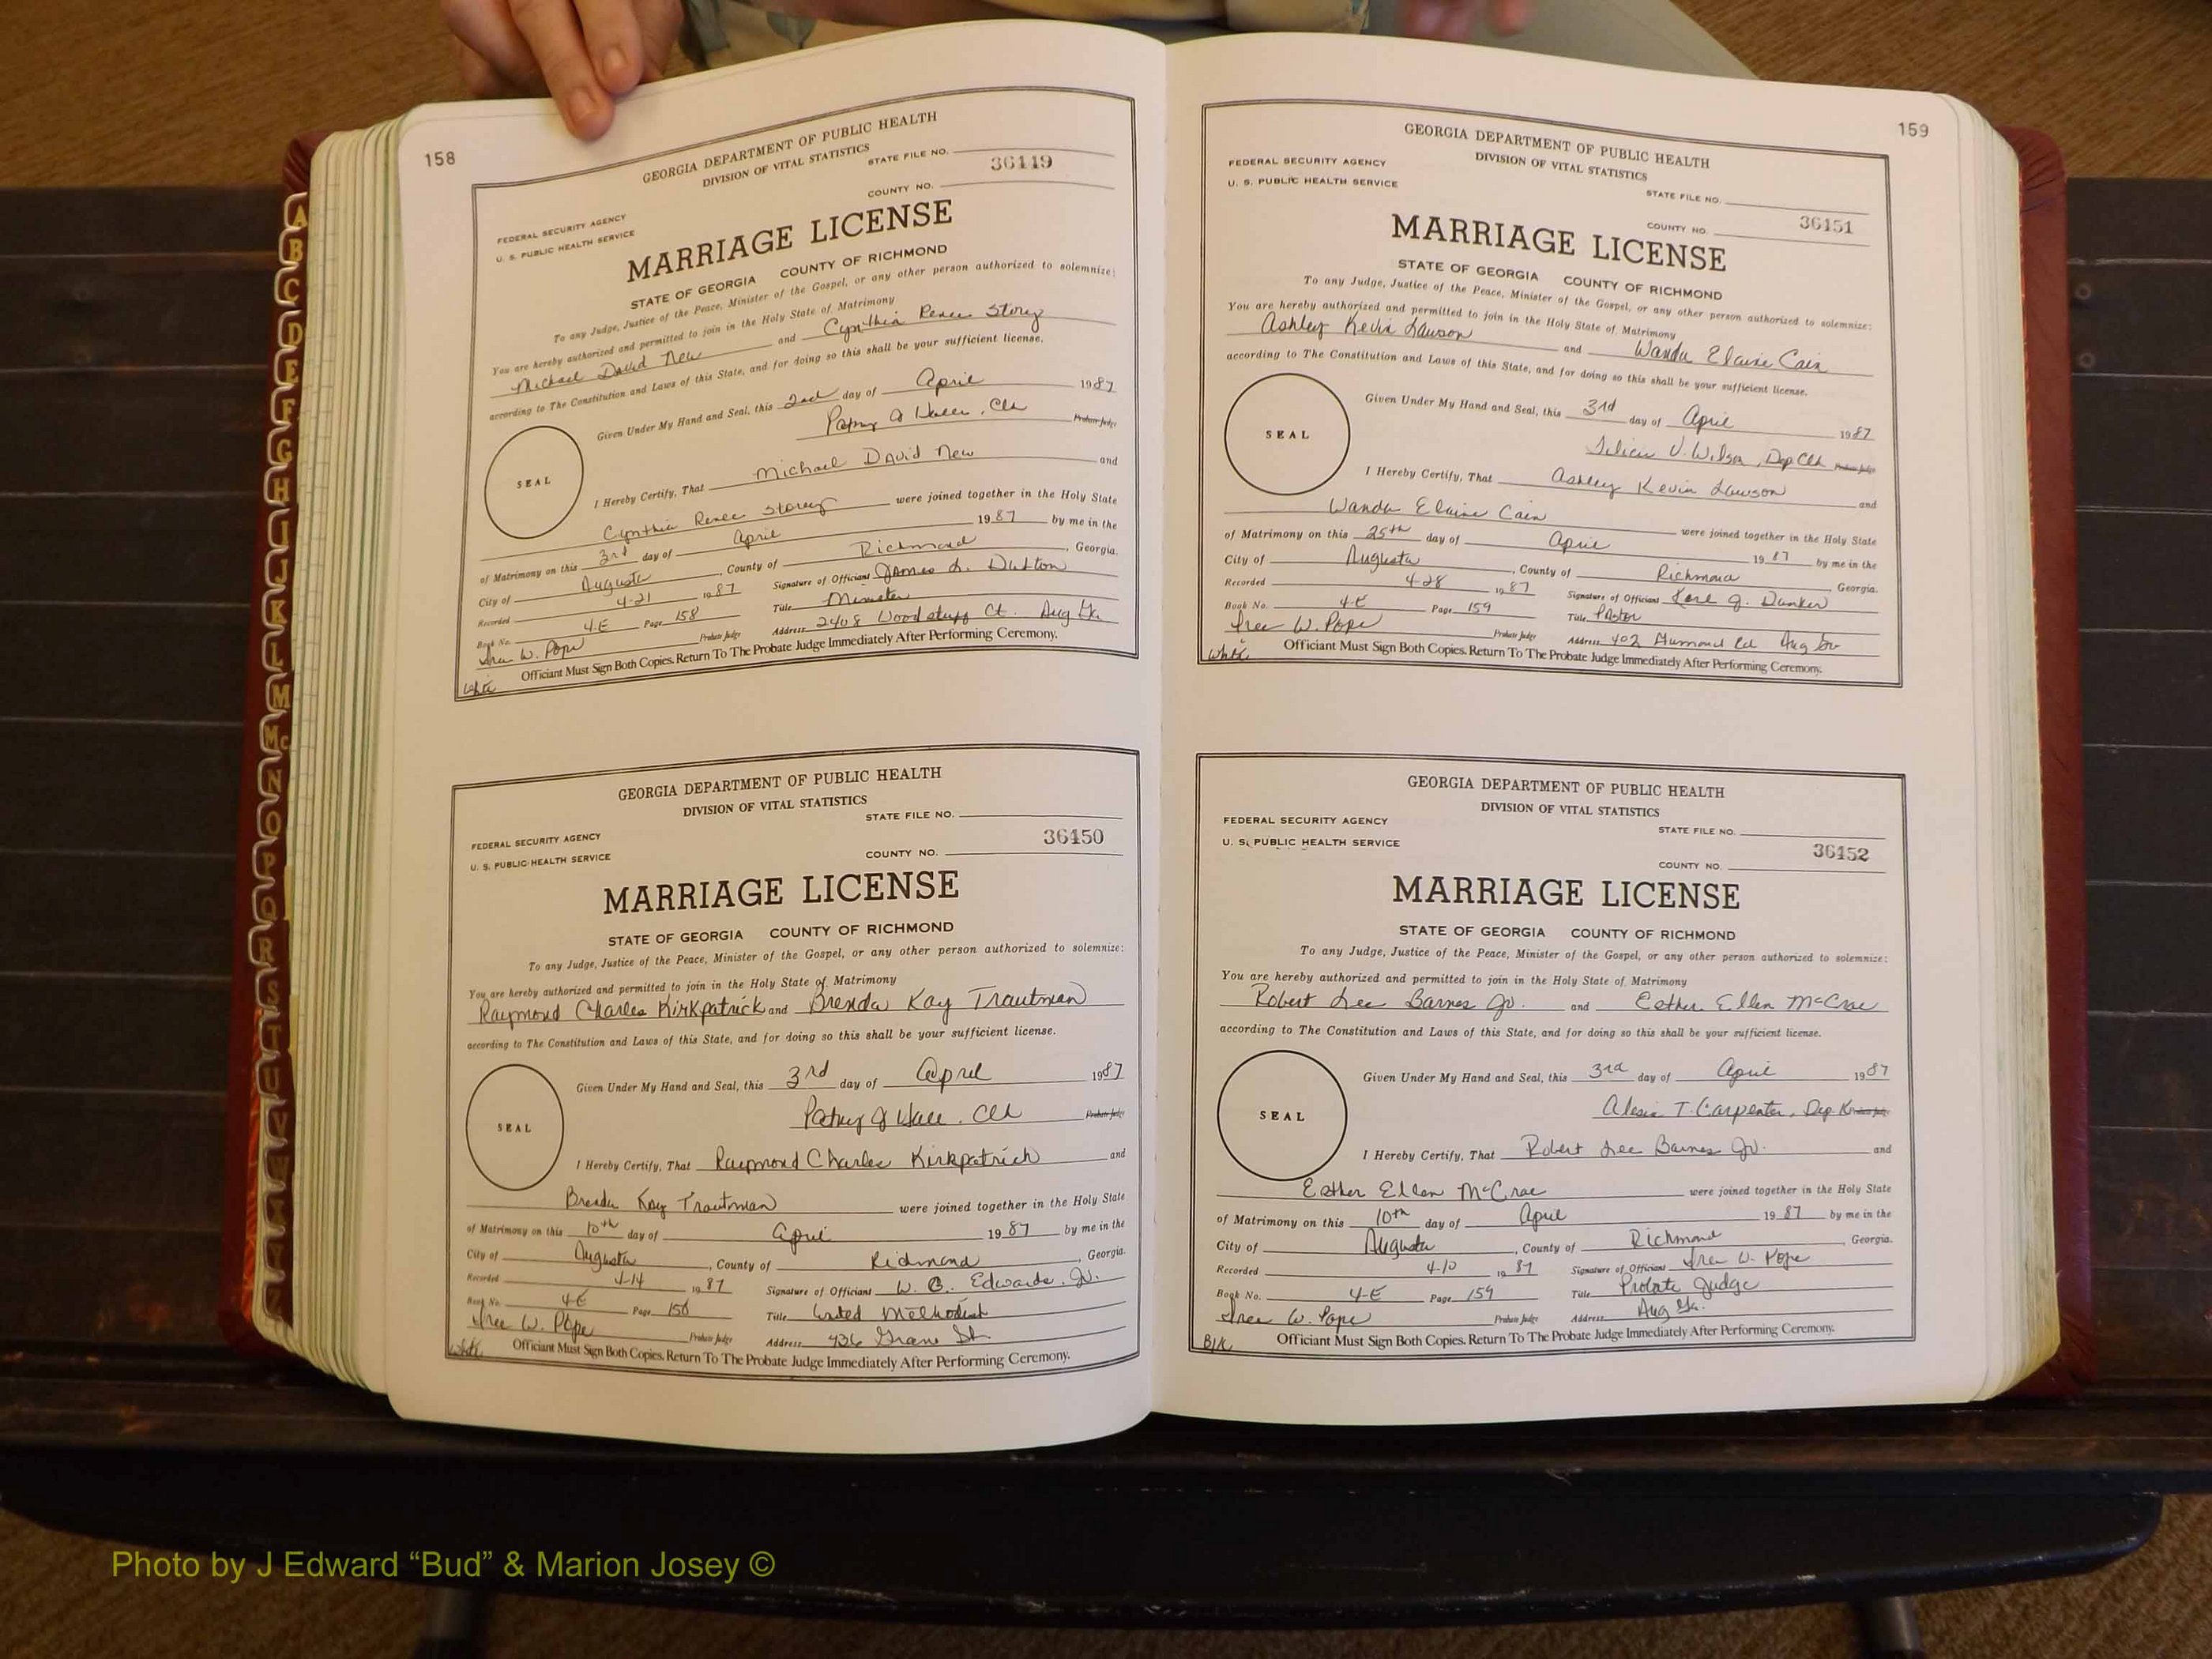 158
GEORGIA DEPARTMENT OF PUBLIC HEALTH
DIVISION OF VITAL STATISTICS
STATE FILE NO.
36149
COUNTY NO.
FEDERAL SECURITY AGENCY
U. S. PUBLIC HEALTH SERVICE
MARRIAGE LICENSE
STATE OF GEORGIA COUNTY OF RICHMOND
To any Judge, Justice of the Peace, Minister of the Gospel, or any other person authorized to solemnize:
You are hereby authorized and permitted to join in the Holy State of Matrimony
Michael David New and Cynthia Renee Storey
according to The Constitution and Laws of this State, and for doing so this shall be your sufficient license.
Given Under My Hand and Seal, this 2nd day of April 1987
Probate Judge
SEAL
I Hereby Certify, That Michael David New and
Cynthia Renee Storey were joined together in the Holy State
of Matrimony on this 3rd day of April 1987 by me in the
City of Augusta, County of Richmond, Georgia.
Recorded 4-21 1987 Signature of Officiant James L. Dutton
Book No. 4-E Page 158 Title Minister
W. Pope Probate Judge Address 2408 Ct. Aug Ga.
White
Officiant Must Sign Both Copies. Return To The Probate Judge Immediately After Performing Ceremony.
GEORGIA DEPARTMENT OF PUBLIC HEALTH
DIVISION OF VITAL STATISTICS
STATE FILE NO.
36150
FEDERAL SECURITY AGENCY
U. S. PUBLIC HEALTH SERVICE
COUNTY NO.
MARRIAGE LICENSE
STATE OF GEORGIA COUNTY OF RICHMOND
To any Judge, Justice of the Peace, Minister of the Gospel, or any other person authorized to solemnize:
You are hereby authorized and permitted to join in the Holy State of Matrimony
Raymond Charles Kirkpatrick and Brenda Kay Trautman
according to The Constitution and Laws of this State, and for doing so this shall be your sufficient license.
Given Under My Hand and Seal, this 3rd day of April 1987
Probate Judge
SEAL
I Hereby Certify, That Raymond Charles Kirkpatrick and
Brenda Kay Trautman were joined together in the Holy State
of Matrimony on this 10th day of April 1987 by me in the
City of Augusta, County of Richmond, Georgia.
Recorded 4-14 1987 Signature of Officiant Edwards, Jr.
Book No. 4-E Page 158 Title United Methodist
W. Pope Probate Judge Address 936
White
Officiant Must Sign Both Copies. Return To The Probate Judge Immediately After Performing Ceremony.
159
GEORGIA DEPARTMENT OF PUBLIC HEALTH
DIVISION OF VITAL STATISTICS
FEDERAL SECURITY AGENCY
U. S. PUBLIC HEALTH SERVICE
STATE FILE NO.
36151
COUNTY NO.
MARRIAGE LICENSE
STATE OF GEORGIA COUNTY OF RICHMOND
To any Judge, Justice of the Peace, Minister of the Gospel, or any other person authorized to solemnize:
You are hereby authorized and permitted to join in the Holy State of Matrimony
Ashley Kevin Lawson and Wanda Elaine Cain
according to The Constitution and Laws of this State, and for doing so this shall be your sufficient license.
Given Under My Hand and Seal, this 3rd day of April 1987
V. Wilson, Dep Clk Probate Judge
SEAL
I Hereby Certify, That Ashley Kevin Lawson and
Wanda Elaine Cain were joined together in the Holy State
of Matrimony on this 25th day of April 1987 by me in the
City of Augusta, County of Richmond Georgia.
Recorded 4-28 1987 Signature of Officiant
Book No. 4-E Page 159 Title Pastor
W. Pope Probate Judge Address 402 Aug Ga
White
Officiant Must Sign Both Copies. Return To The Probate Judge Immediately After Performing Ceremony.
GEORGIA DEPARTMENT OF PUBLIC HEALTH
DIVISION OF VITAL STATISTICS
FEDERAL SECURITY AGENCY
U. S. PUBLIC HEALTH SERVICE
STATE FILE NO.
36152
COUNTY NO.
MARRIAGE LICENSE
STATE OF GEORGIA COUNTY OF RICHMOND
To any Judge, Justice of the Peace, Minister of the Gospel, or any other person authorized to solemnize:
You are hereby authorized and permitted to join in the Holy State of Matrimony
Robert Lee Barnes Jr. and Esther Ellen McCrae
according to The Constitution and Laws of this State, and for doing so this shall be your sufficient license.
Given Under My Hand and Seal, this 3rd day of April 1987
Alesia T. Carpenter, Dep. Probate Judge
SEAL
I Hereby Certify, That Robert Lee Barnes Jr. and
Esther Ellen McCrae were joined together in the Holy State
of Matrimony on this 10th day of April 1987 by me in the
City of Augusta, County of Richmond, Georgia.
Recorded 4-10 1987 Signature of Officiant W. Pope
Book No. 4-E Page 159 Title Probate Judge
W. Pope Probate Judge Address Aug Ga.
Blk
Officiant Must Sign Both Copies. Return To The Probate Judge Immediately After Performing Ceremony.
A
B
C
D
E
F
G
H
I
J
K
L
M
Mc
N
O
P
Q
R
S
T
U
V
Photo by J Edward “Bud” & Marion Josey ©